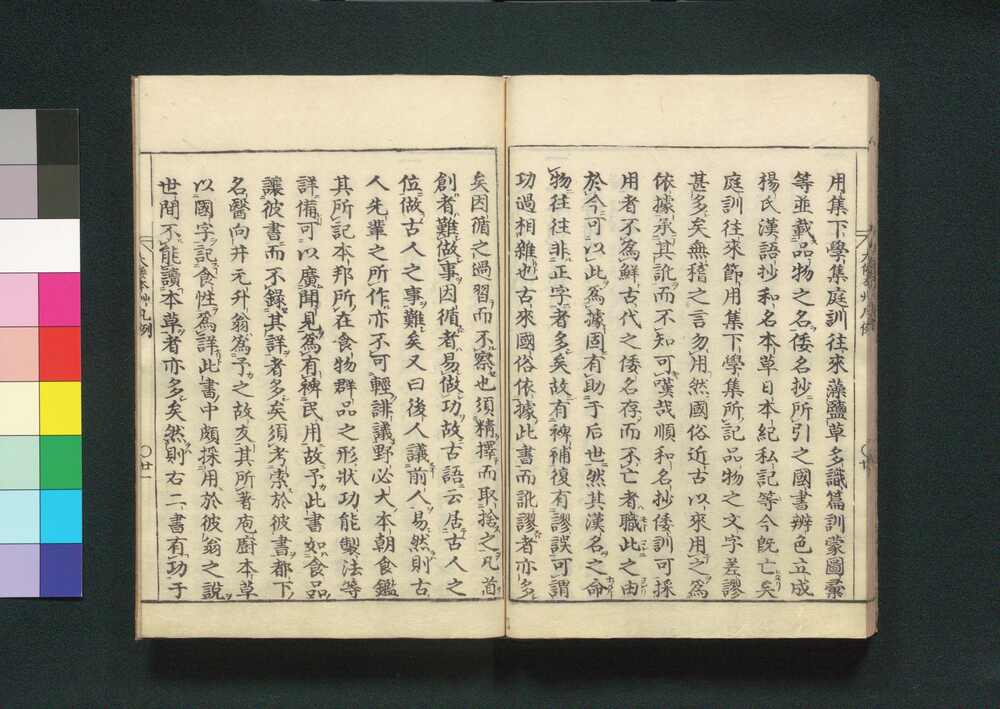 用集下學集庭訓往來藻鹽草多識篇訓蒙圖彙
等並載品物之名倭名抄所引之國書辨色立成
揚氏漢語抄和名本草日本紀私記等今既亡矣
庭訓往來節用集下學集所記品物之文字差謬
甚多矣無稽之言勿用然國俗近古以來用之為
依據承其訛而不知可嘆哉順和名抄倭訓可採
用者不為鮮古代之倭名存而不亡者職此之由
於今可以此為據固有助于后世然其漢名之命
物往往非正字者多矣故有裨補復有謬誤可謂
功過相雜也古來國俗依據此書而訛謬者亦多
矣因循之過習而不察也須精擇而取捨之凡首
創者難做事因循者易做功故古語云居古人之
位做古人之事難矣又曰後人議前人易然則古
人先輩之所作亦不可輕誹議野必大本朝食鑑
其所記本邦所在食物群品之形狀功能製法等
詳備可以廣聞見為有裨民用故予此書如食品
讓彼書而不錄其詳者多矣須考索於彼書都下
名醫向井元升翁為予之故友其所著庖廚本草
以國字記食性為詳此書中頗採用於彼翁之說
世間不能讀本草者亦多矣然則右二書有功于